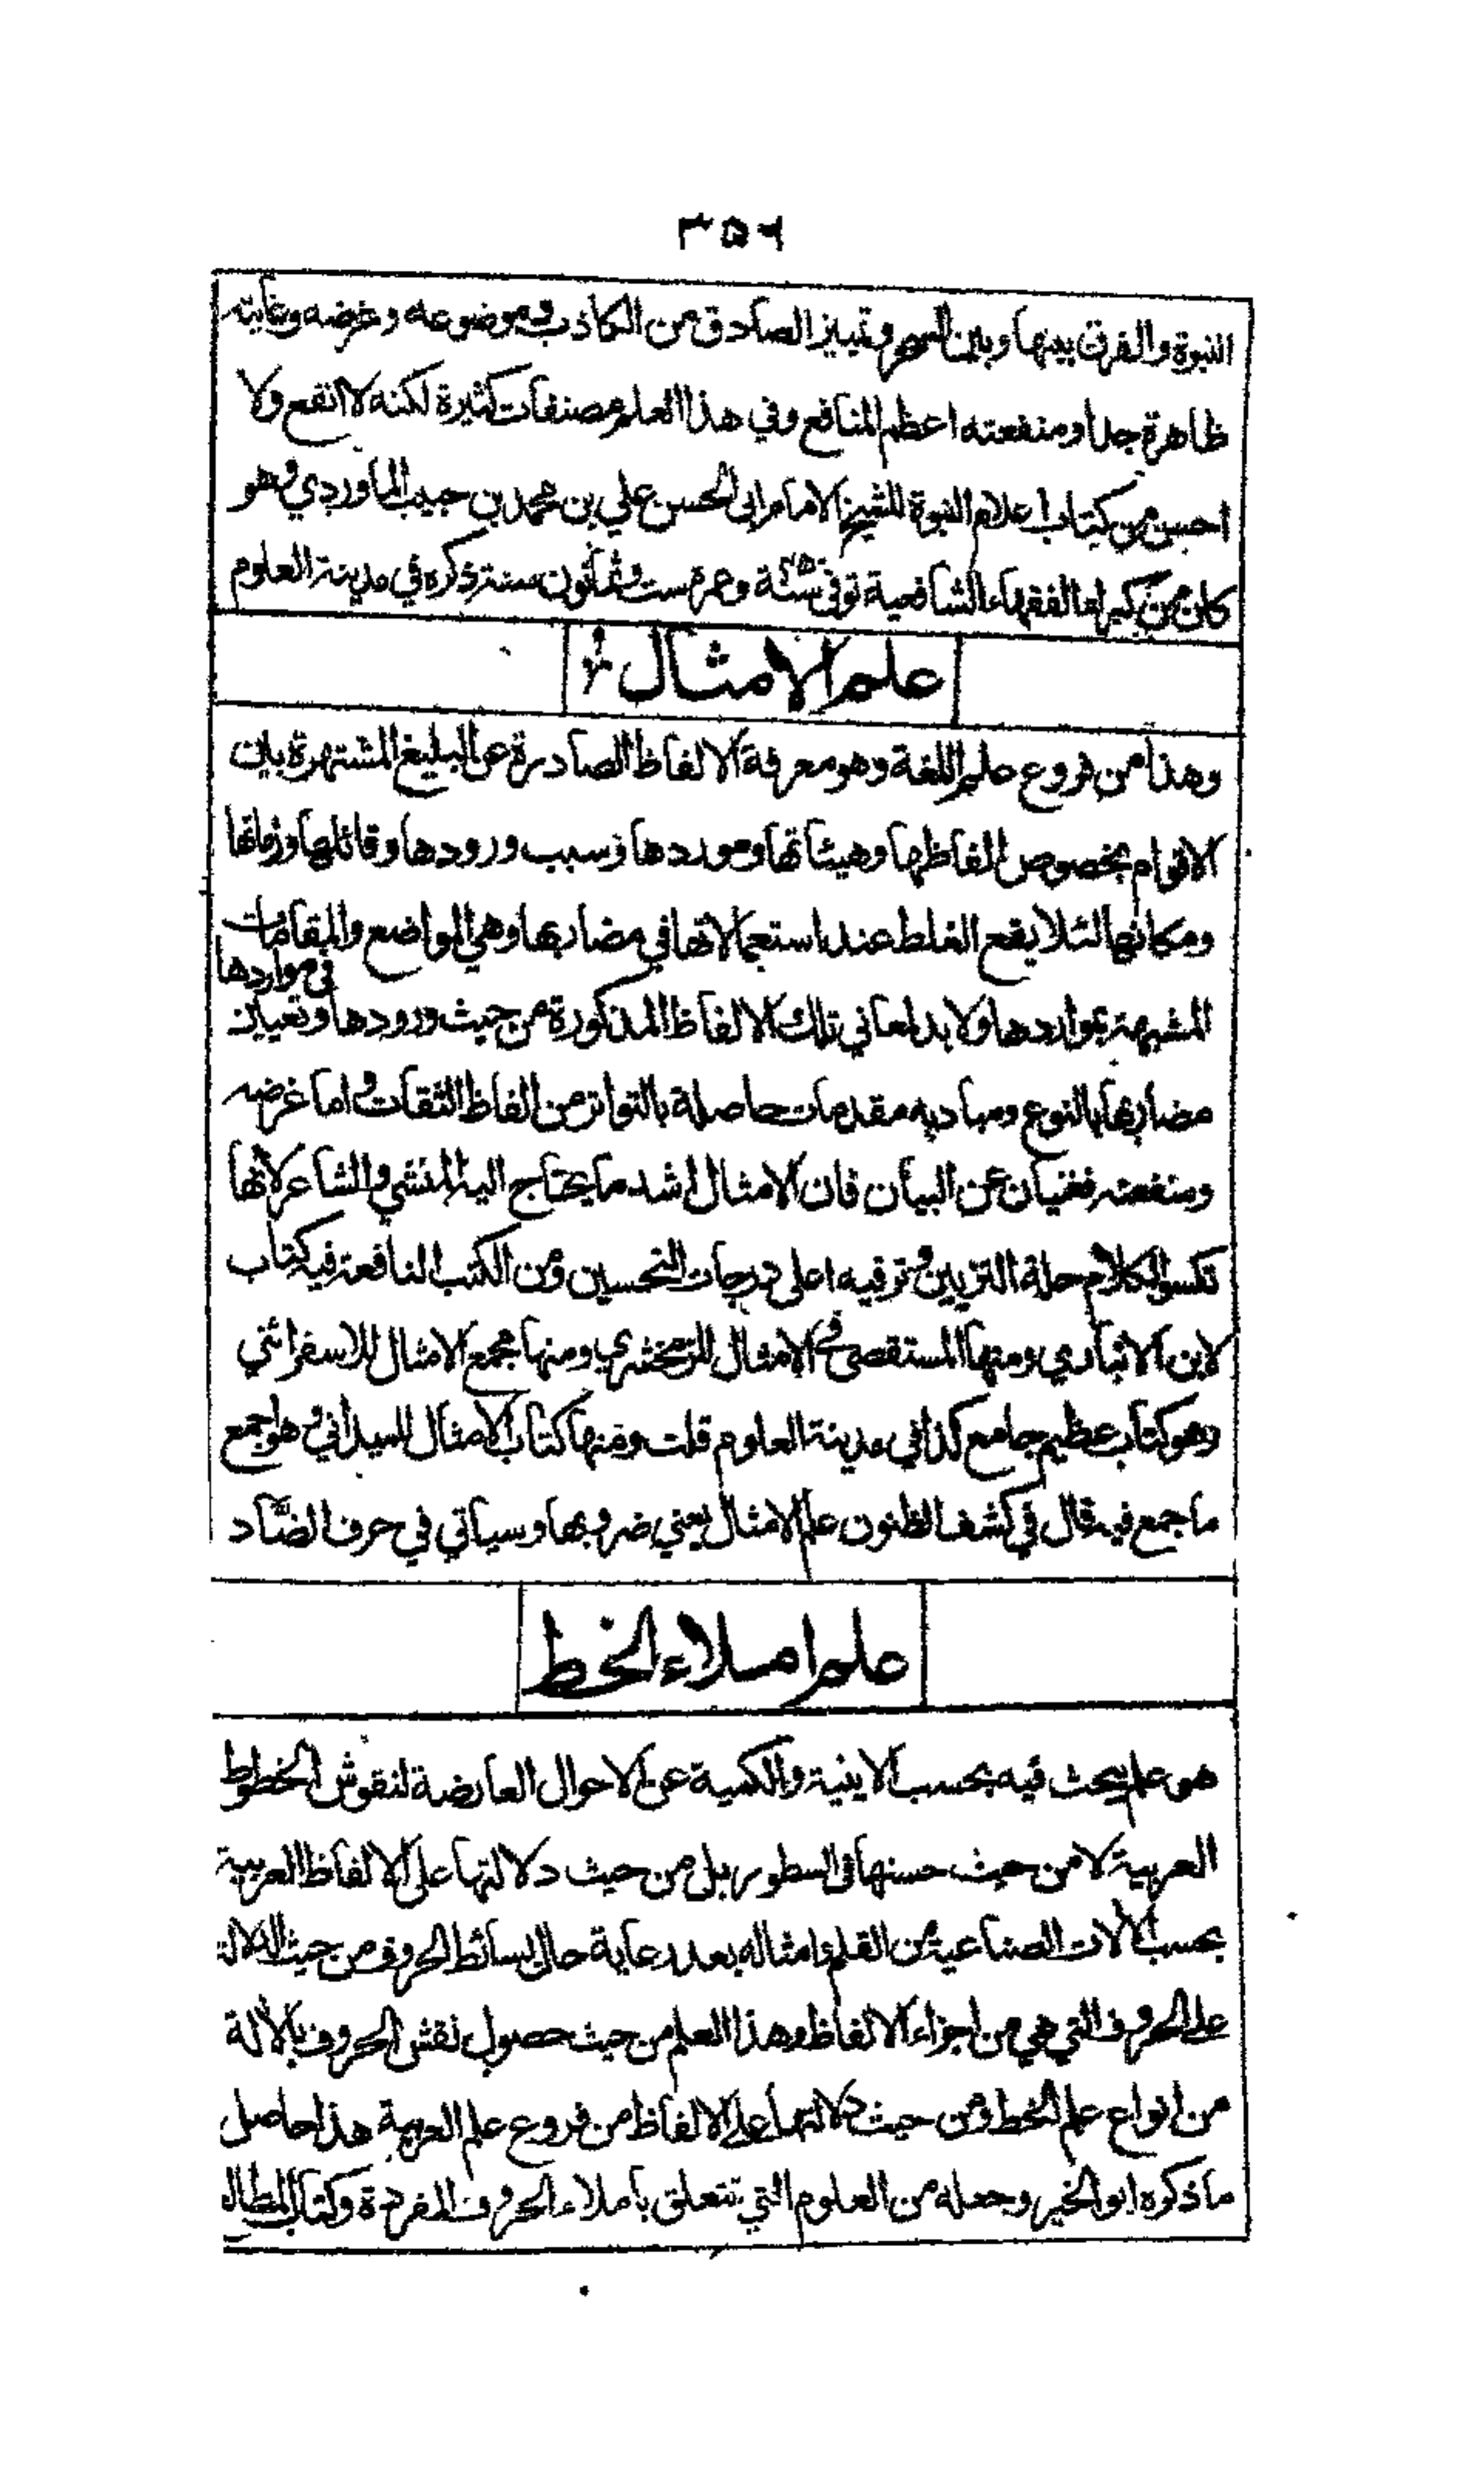 ٣٥٦
النبوة والفرق بينها وبين السحر وتمييز الصادق من الكاذب وموضوعه وغرضه وغايته
ظاهرة جدا ومنفعته اعظم المنافع وفي هذا العلم مصنفات كثيرة لكنه لا انفع ولا
احسن من كتاب اعلام النبوة للشيخ الامام ابى الحسن علي بن محمد بن حبيب الماوردي وهو
كان من كبراء الفقهاء الشافعية توفي سنة وعمره ست وثمانون سنة ذكره في مدينة العلوم
علم الامثال
وهذا من فروع علم اللغة وهو معرفة الالفاظ الصادرة عن البليغ المشتهرة بين
الاقوام بخصوص الفاظها وهيئاتها وموردها وسبب ورودها وقائلها وزمانها
ومكانها لئلا يقع الغلط عند استعمالاتها في مضاربها وهي المواضع والمقامات
في مواردها
المشبهة بمواردها ولا بد لمعاني تلك الالفاظ المذكورة من حيث ورودها وتعيين
مضاربها بالنوع ومباديه مقدمات حاصلة بالتواتر من الفاظ الثقات واما غرضه
ومنفعته فغنيان عن البيان فان الامثال اشد ما يحتاج اليه المنشي والشاعر لانها
تكسو الكلام حلة التزيين وترقيه اعلى درجات التحسين ومن الكتب النافعة فيه كتاب
لابن الانباري ومنها المستقصى في الامثال للزمخشري ومنها مجمع الامثال للاسفرائني
وهو كتاب عظيم جامع كذا في مدينة العلوم قلت ومنها كتاب الامثال للميداني وهو اجمع
ما جمع فيه قال في كشف الظنون علم الامثال يعني ضروبها وسيأتي في حرف الضاد
علم املاء الخط
هو علم يبحث فيه بحسب الاينية والكمية عن الاحوال العارضة لنقوش الخطوط
العربية لا من حيث حسنها في السطور بل من حيث دلالتها على الالفاظ العربية
بحسب الآلات الصناعية من القلم وامثاله بعد رعاية حال بسائط الحروف من حيث الدلالة
على الحروف التي هي من اجزاء الالفاظ وهذا العلم من حيث حصول نقش الحروف بالآلة
من انواع علم الخط ومن حيث دلالتها على الالفاظ من فروع علم العربية هذا حاصل
ما ذكره ابو الخير وجعله من العلوم التي تتعلق باملاء الحروف المفردة وكتاب المطالب